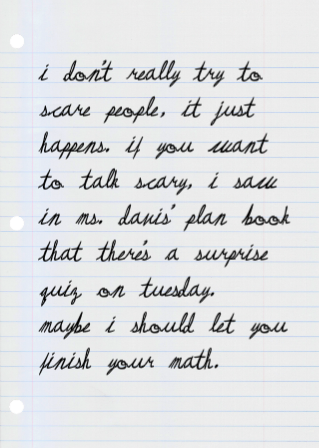 i don't really try to
scare people. it just
happens. if you want
to talk scary, i saw
in ms. davis' plan book
that there's a surprise
quiz on tuesday.
maybe i should let you
finish your math.